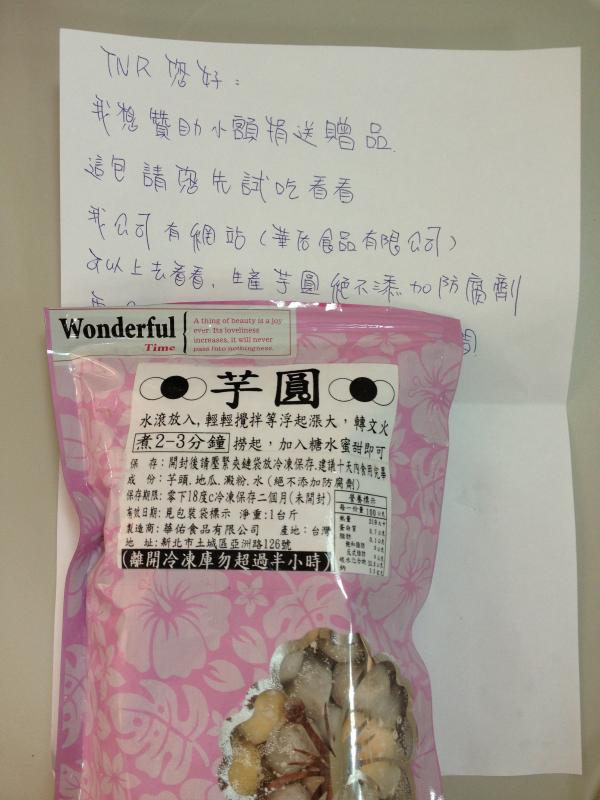 TNR 您好：
我想贊助小額捐送贈品.
這包請您先試吃看看
我公司有網站（華佑食品有限公司）
可以上去看看，生產芋圓絕不添加防腐劑
Wonderful
Time
A thing of beauty is a joy
ever. Its loveliness
increases, it will never
pass into nothingness.
芋圓
水滾放入,輕輕攪拌等浮起漲大，轉文火
煮2-3分鐘 撈起，加入糖水蜜甜即可
保 存：開封後請壓緊夾鏈袋放冷凍保存.建議十天內食用完畢
成 份：芋頭.地瓜.澱粉.水(絕不添加防腐劑)
保存期限：零下18度c冷凍保存二個月(未開封)
有效日期：見包裝袋標示 淨重:1台斤
製造商：華佑食品有限公司 產地:台灣
地 址:新北市土城區亞洲路126號
(離開冷凍庫勿超過半小時)
營養標示
每一份量 100公克
熱量
蛋白質
脂肪
飽和脂肪
反式脂肪
碳水化合物
鈉